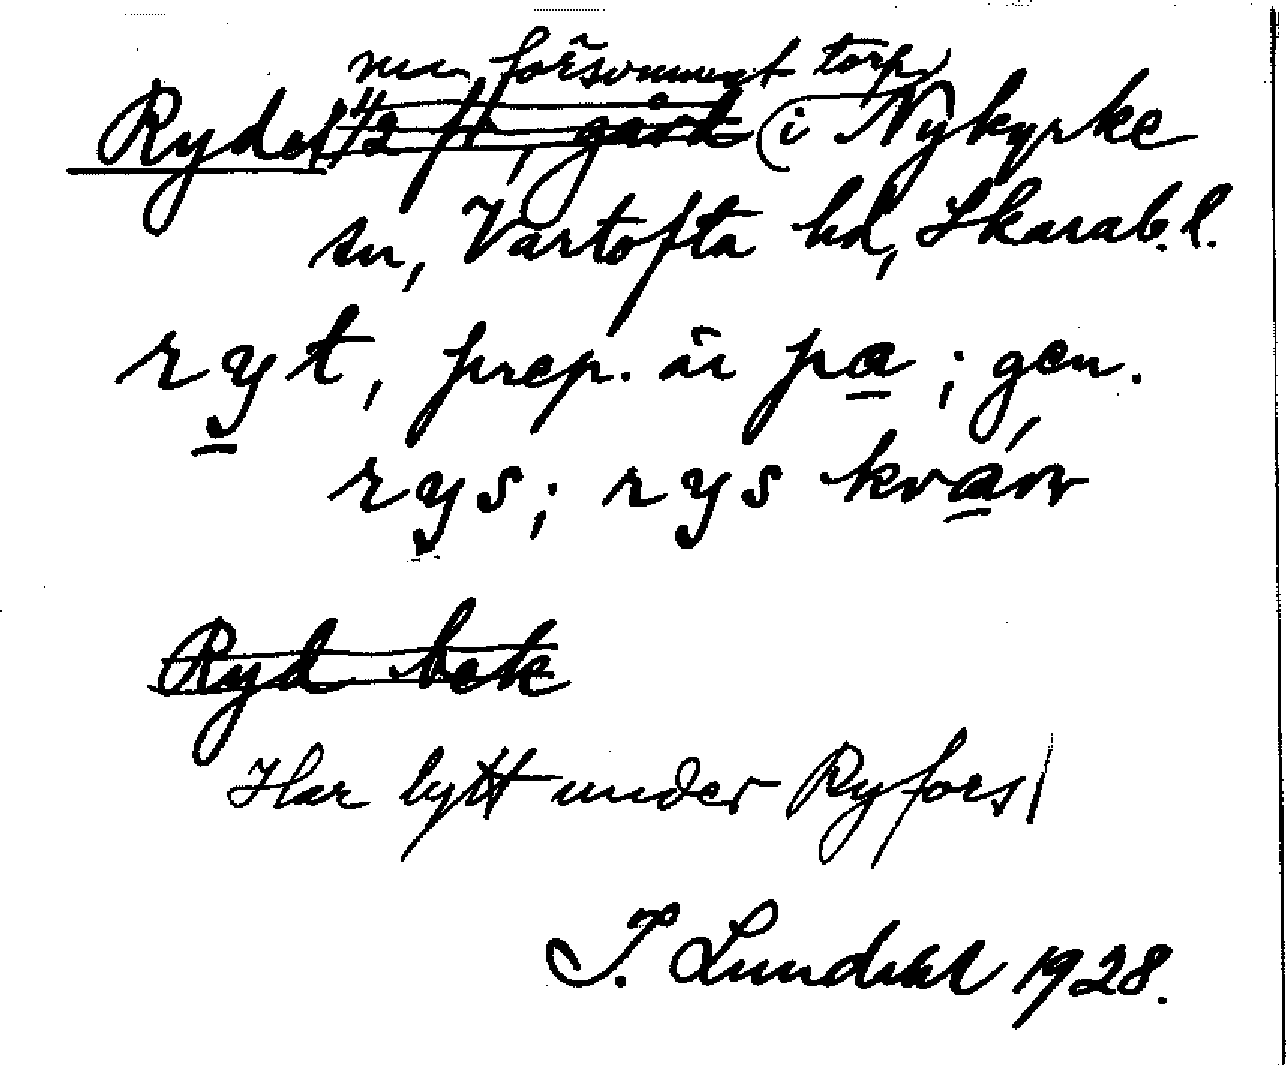 nu försvunnet torp
Rydet 1/2 ft, gård (i Nykyrke
sn, Vartofta hd, Skarab. l.
ryt, prep. är pa ; gen.
rys; rys kvárv
Ryd bek
Har lytt under Ryfors
J. Lundahl 1928.